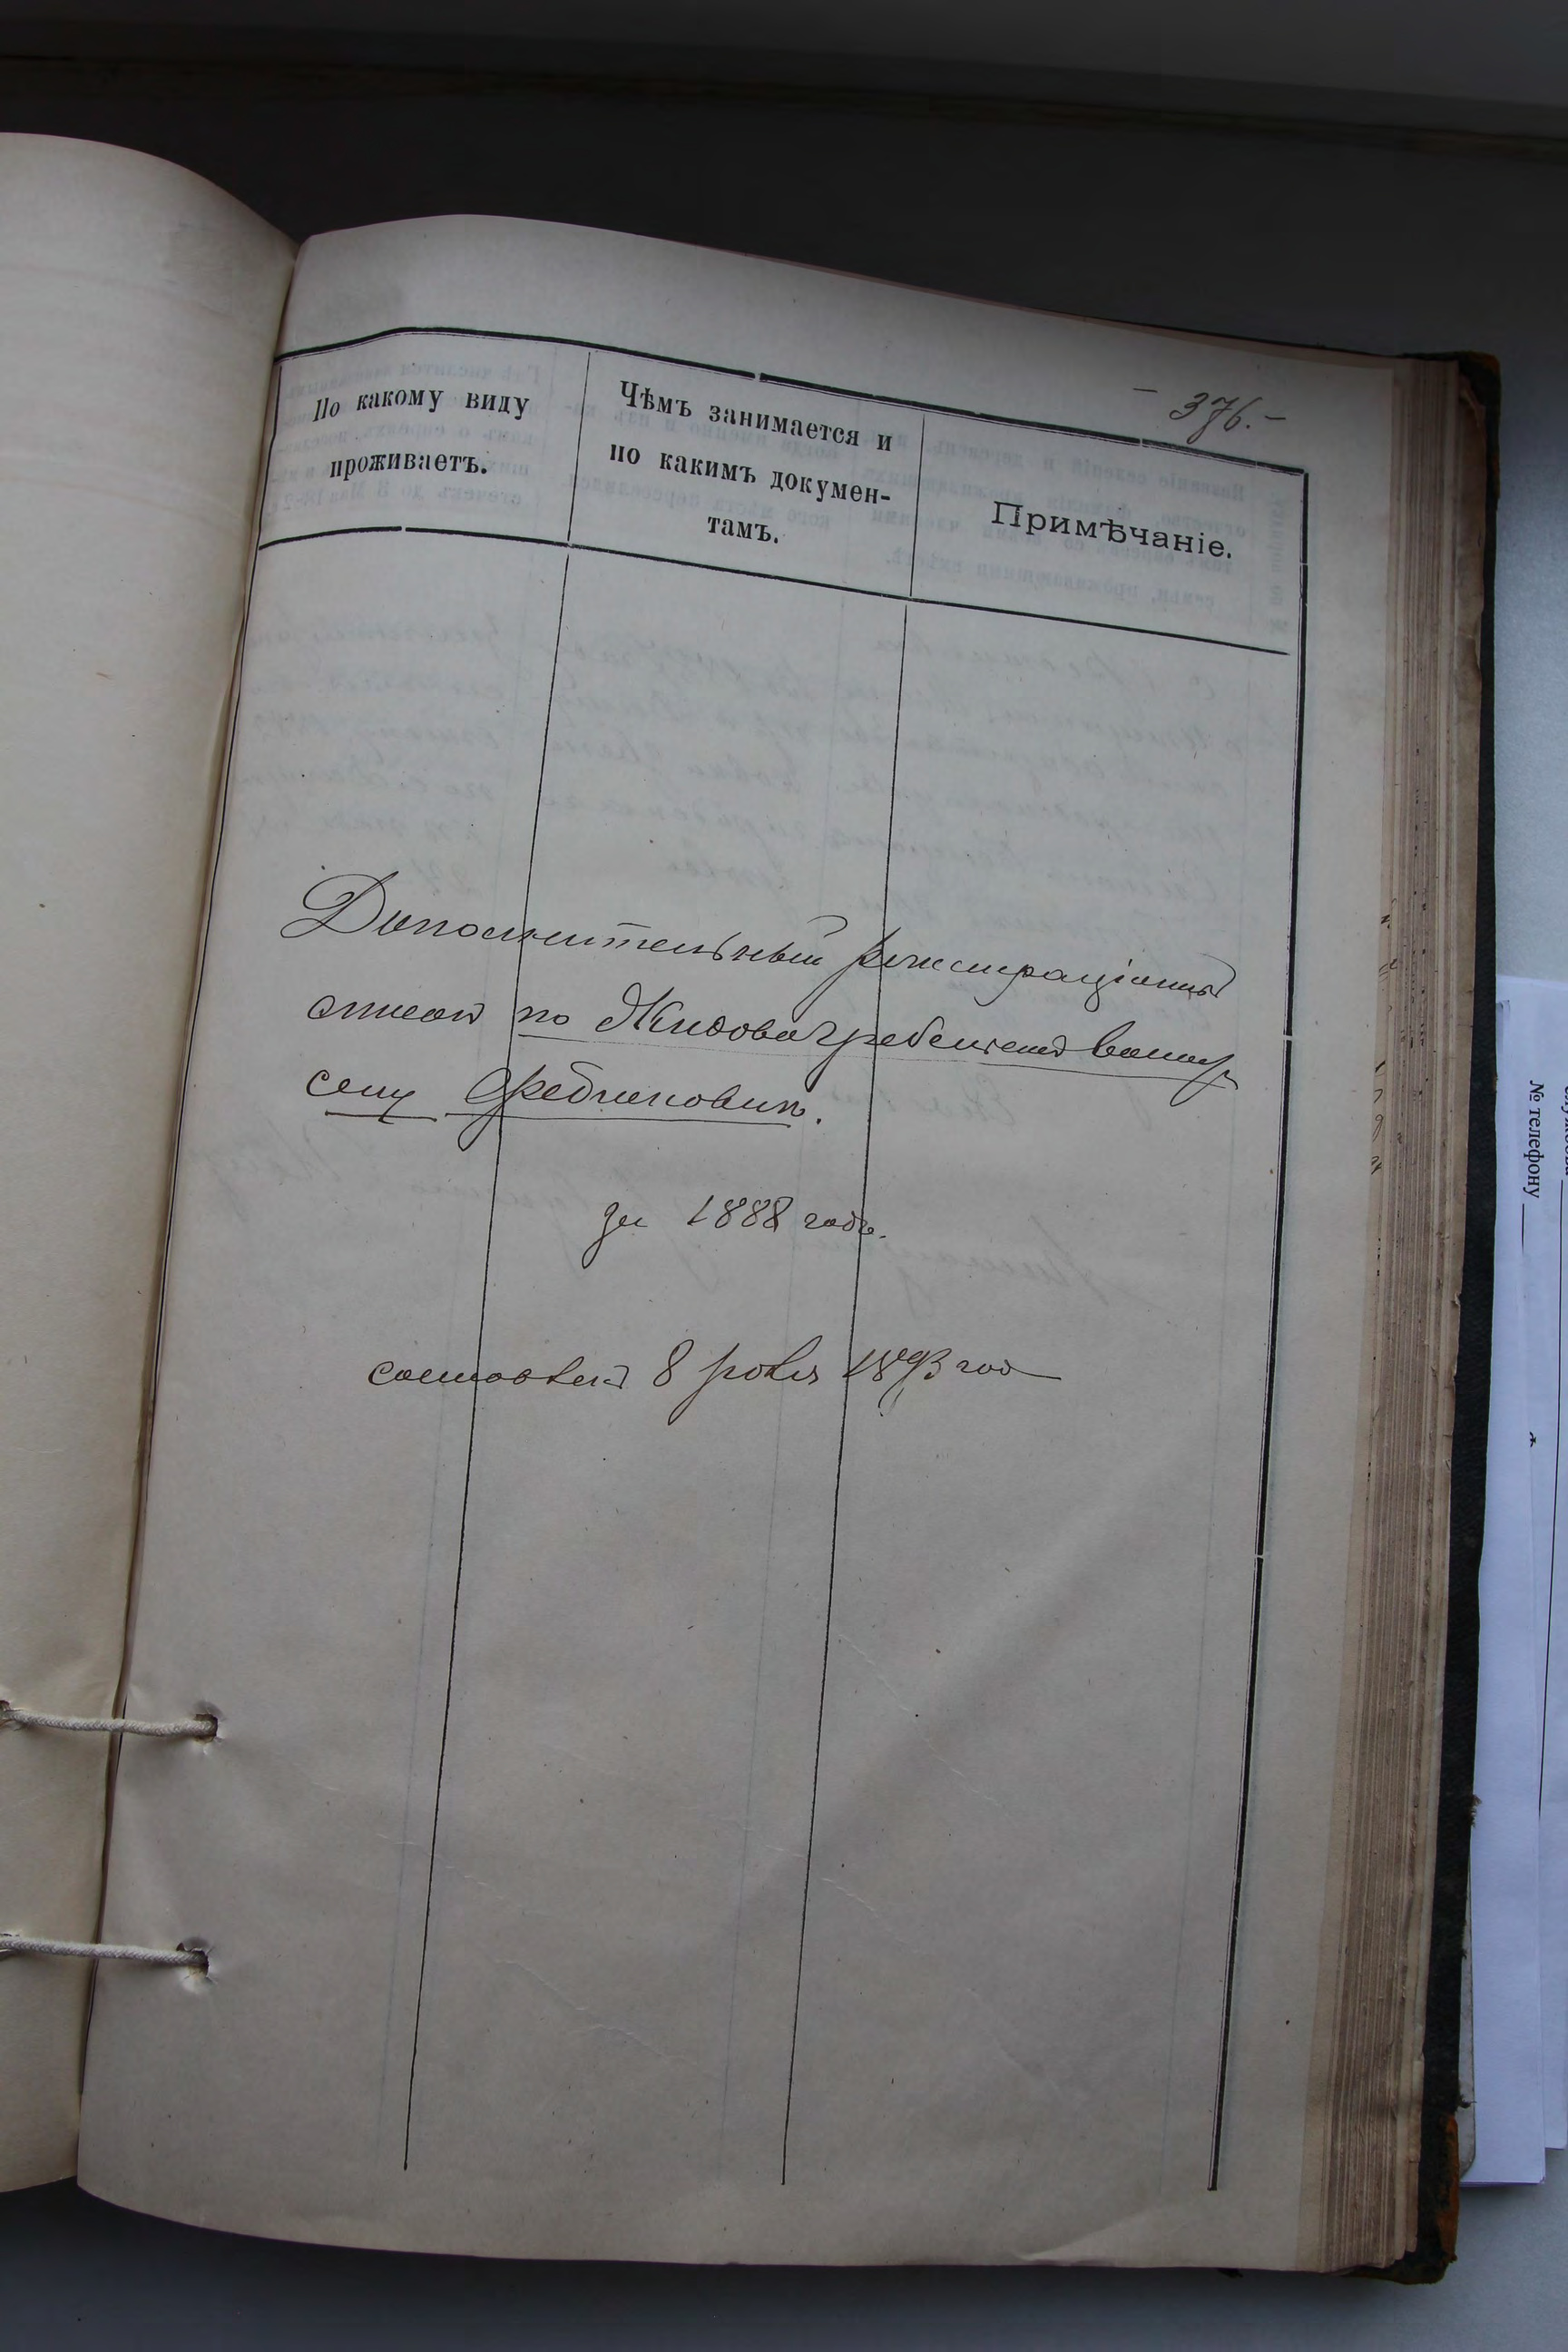 - 376. -
По какому виду
проживаетъ.
Чѣмъ занимается и
по какимъ докумен-
тамъ.
Примѣчаніе.
Дополнительный регистраціонный
списокъ по Жидовогребельской волости
селу
за 1888 годъ.
составленъ 8 1893 год
№ телефону